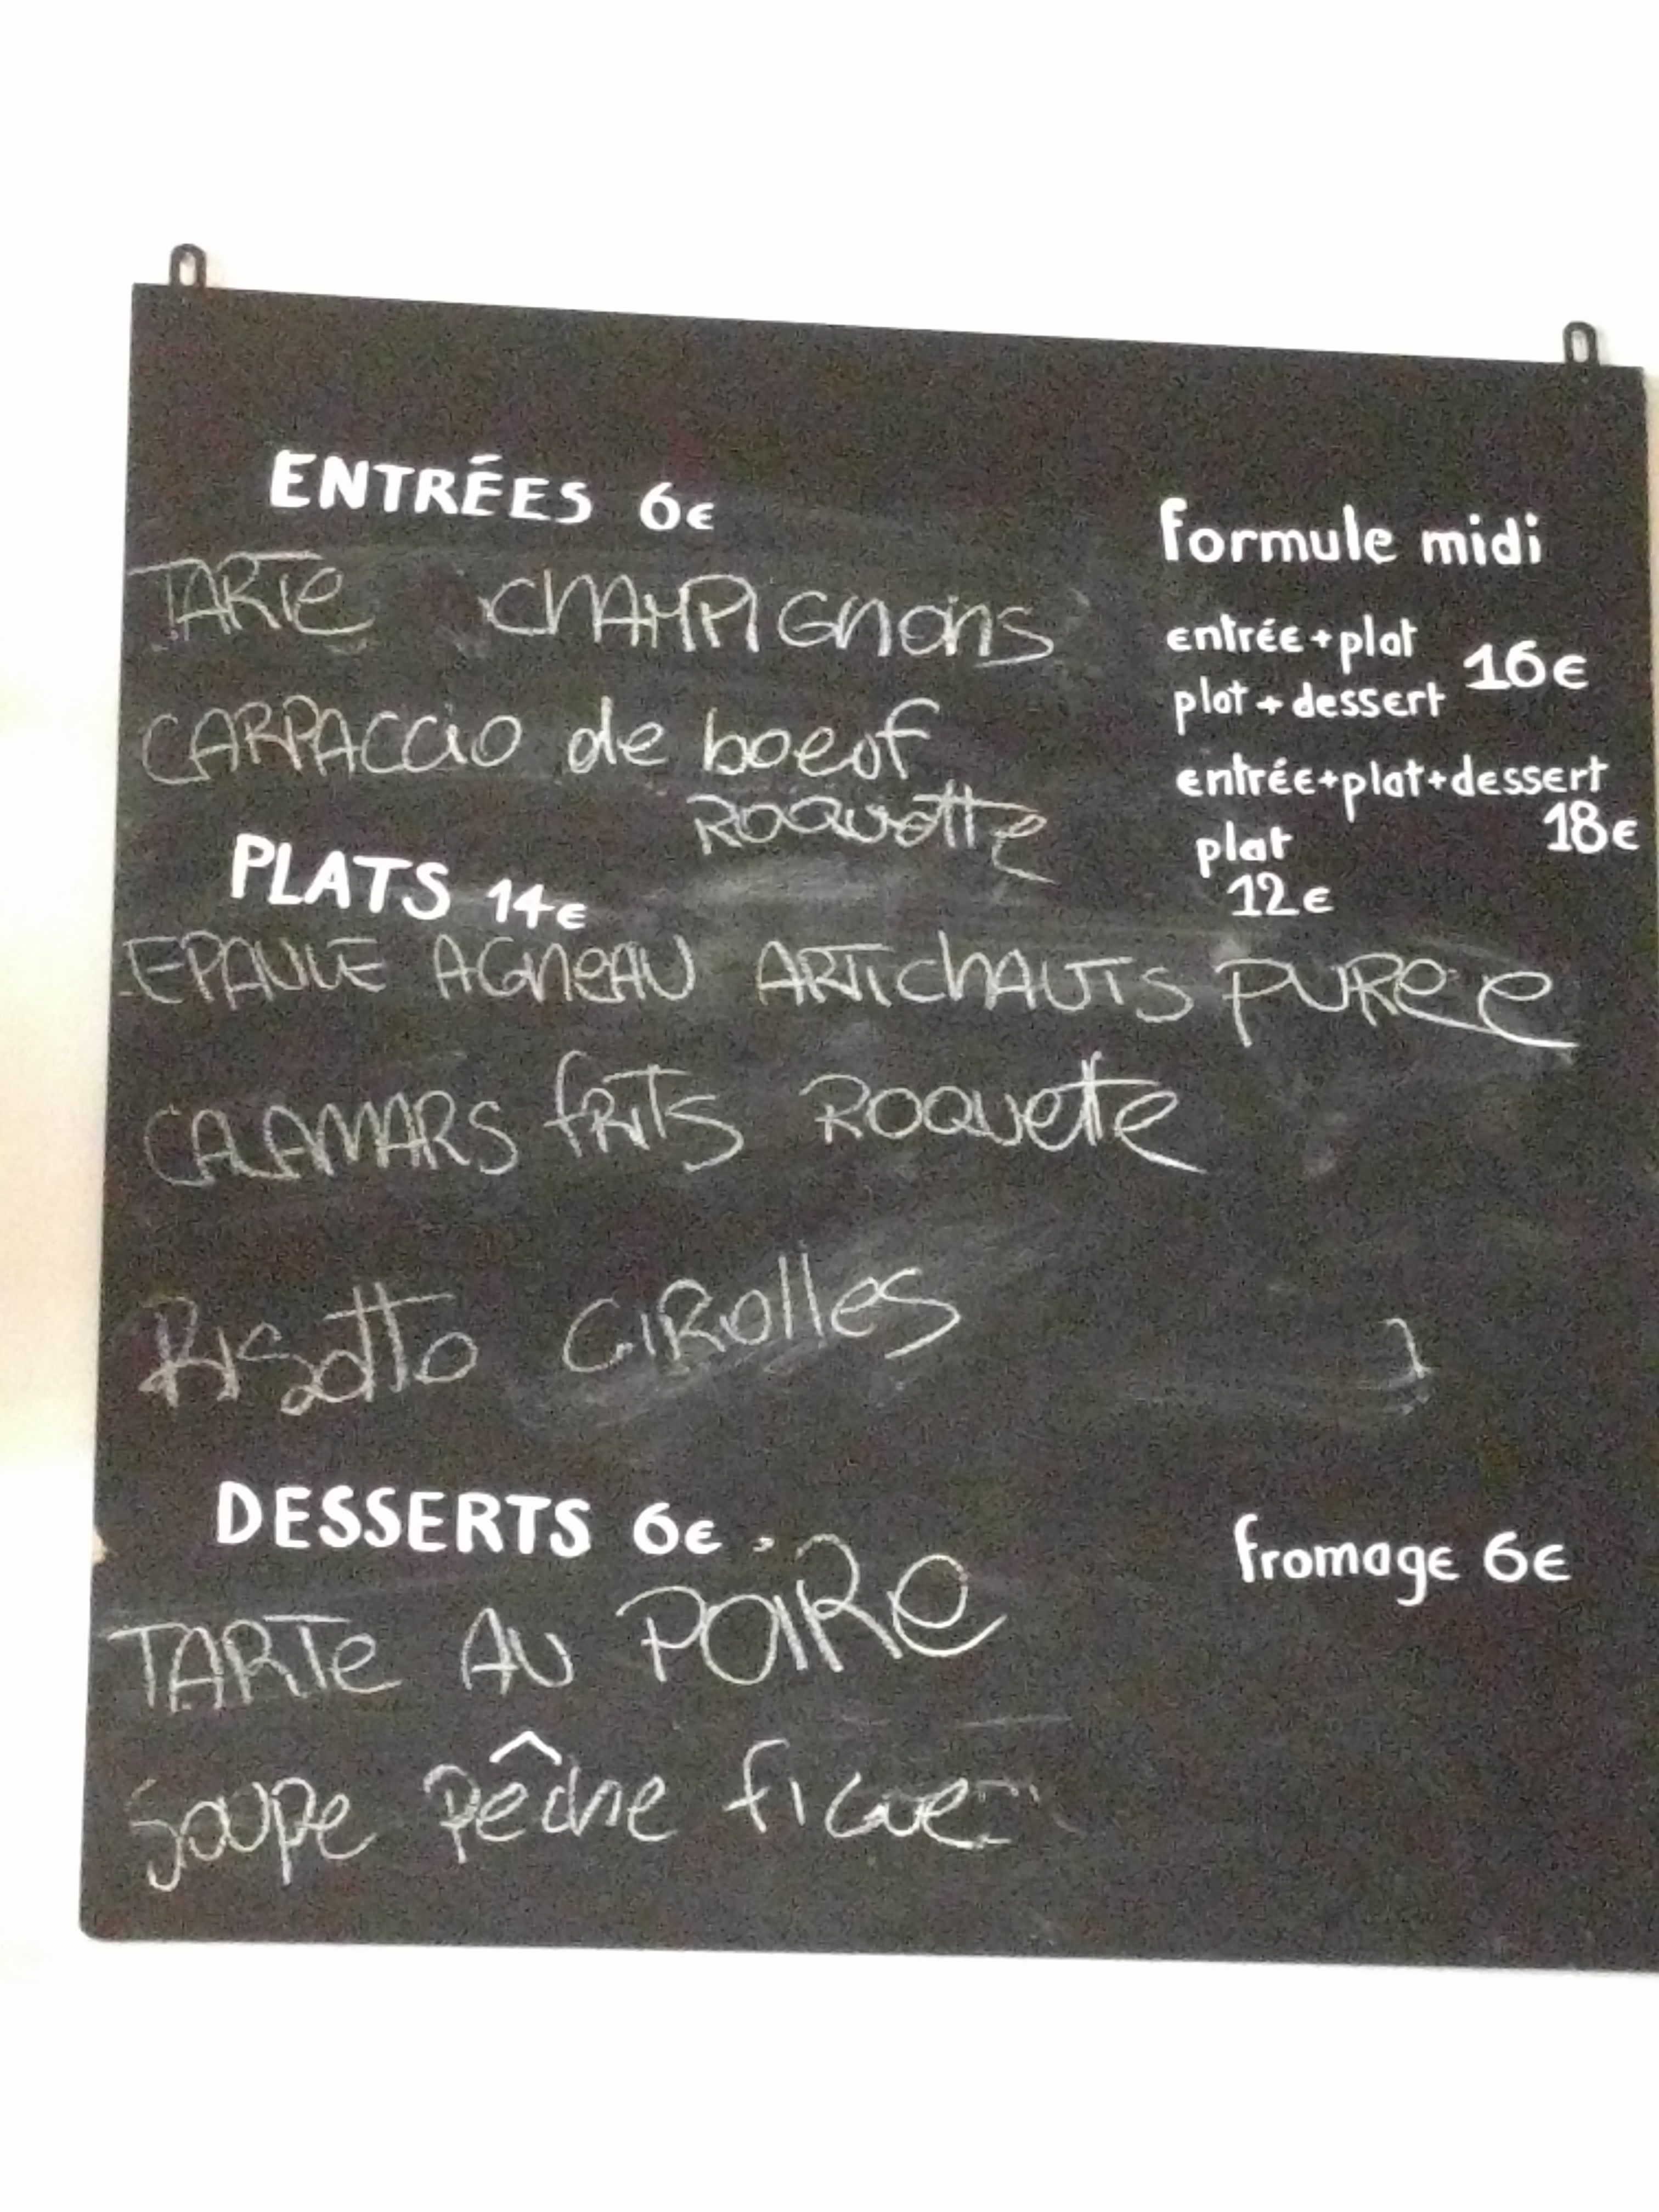 ENTRÉES 6€
TARTE CHAMPIGNONS
CARPACCIO de boeuf
ROQUETTE
PLATS 14€
EPAULE AGNEAU ARTICHAUTS PUREE
CALAMARS FRITS ROQUETTE
RISOTTO GIROLLES
DESSERTS 6€
TARTE AU POIRE
SOUPE PÊCHE FIGUE
formule midi
entrée+plat
16€
plat+dessert
entrée+plat+dessert
18€
plat
12€
fromage 6€